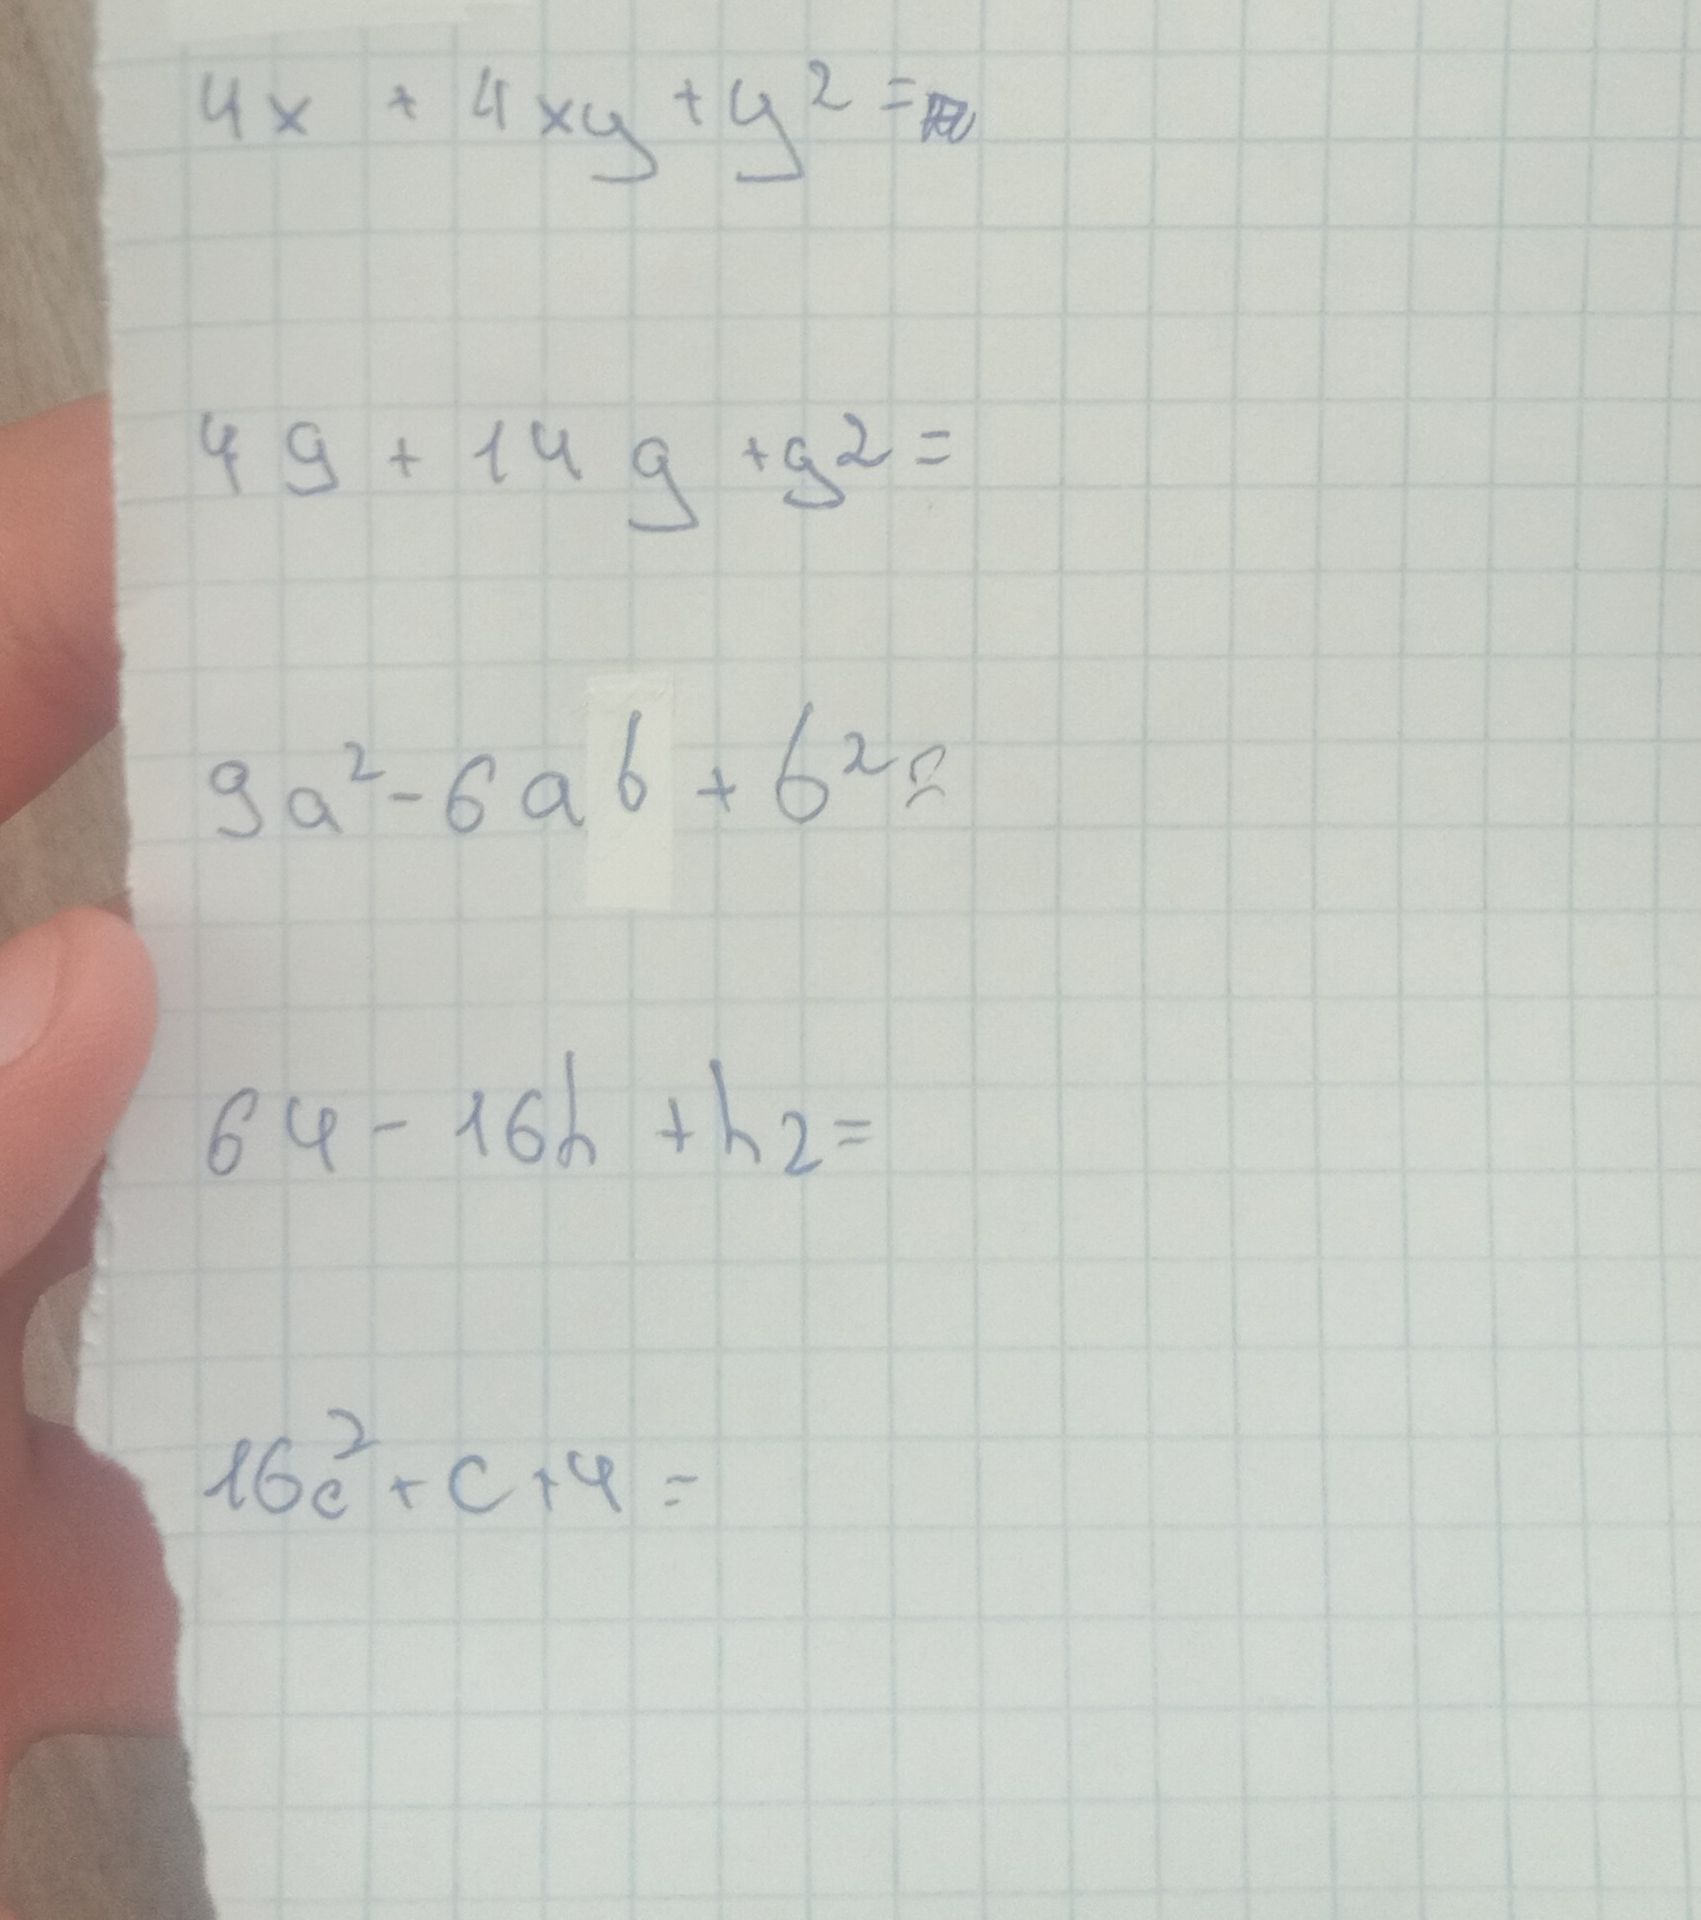 4x + 4xy + y² =
4g + 14g + g2 =
9a² - 6ab + b² =
64 - 16h + h2 =
16c² + c + 4 =